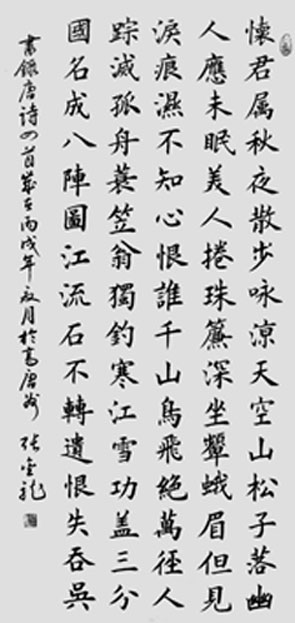 懷君属秋夜散步咏涼天空山松子落幽
人應未眠美人捲珠簾深坐顰蛾眉但見
淚痕濕不知心恨誰千山鳥飛絕萬徑人
踪滅孤舟蓑笠翁獨釣寒江雪功盖三分
國名成八陣圖江流石不轉遺恨失吞吳
書錄唐詩四首歲在丙戌年月於高唐州 张金龙